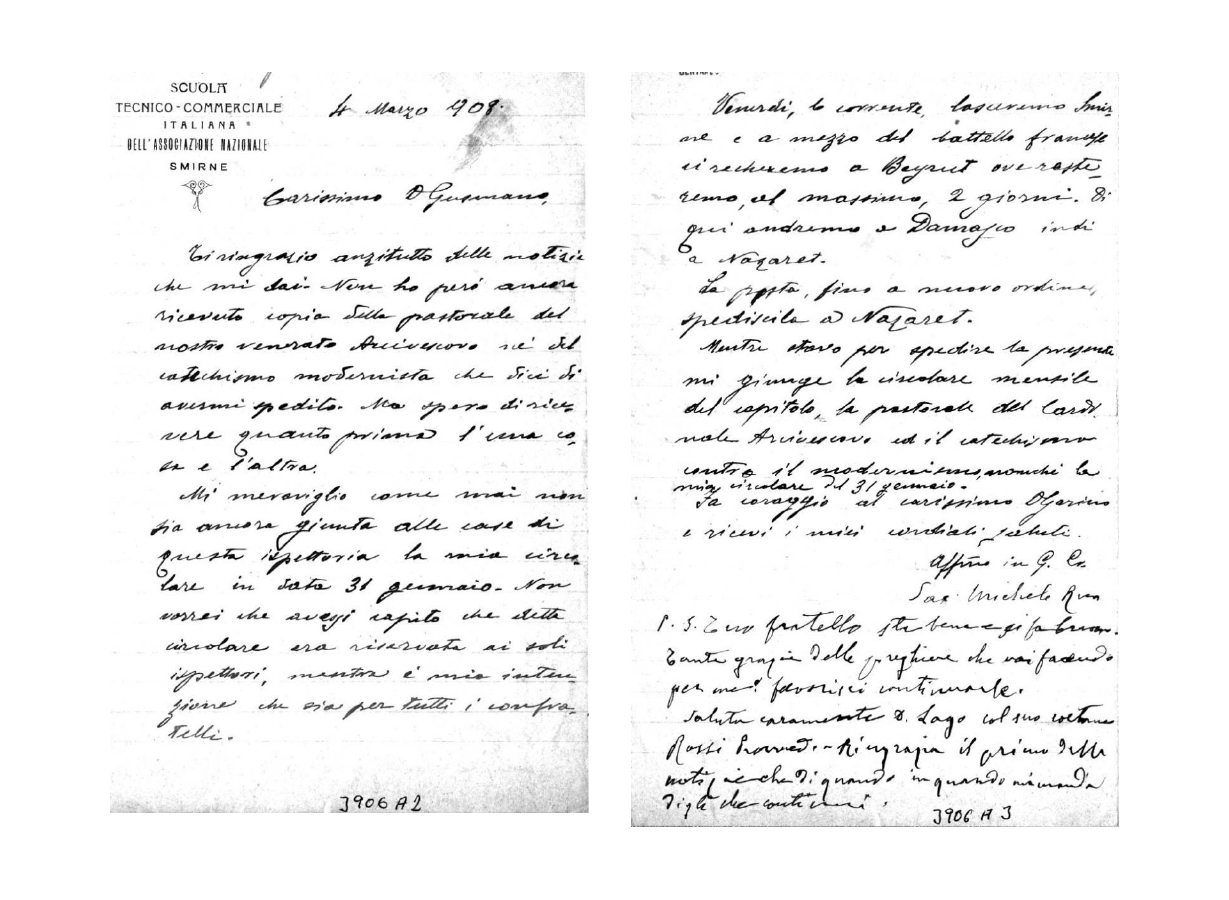 SCUOLA
TECNICO-COMMERCIALE
ITALIANA
DELL'ASSOCIAZIONE NAZIONALE
SMIRNE
4 Marzo 908.
Carissimo D Gusmano,
Ti ringrazio anzitutto delle notizie
che mi dai. Non ho però ancora
ricevuto copia della pastorale del
nostro venerato Arcivescovo né del
catechismo modernista che dici di
avermi spedito. Ma spero di rice-
vere quanto prima l'una co-
sa e l'altra.
Mi meraviglio come mai non
sia ancora giunta alle case di
questa ispettoria la mia circo-
lare in data 31 gennaio. Non
vorrei che avessi capito che detta
circolare era riservata ai soli
ispettori, mentre è mia inten-
zione che sia per tutti i confra-
telli.
3906 A 2
Venerdì, 6 corrente, lasceremo Smir-
ne e a mezzo del battello francese
ci recheremo a Beyrut ove reste-
remo, al massimo, 2 giorni. Di
qui andremo a Damasco indi
a Nazaret.
La posta, fino a nuovo ordine,
spediscila a Nazaret.
Mentre stavo per spedire la presente
mi giunge la circolare mensile
del capitolo, la pastorale del Cardi-
nale Arcivescovo ed il catechismo
contro il modernismo, nonché la
mia circolare del 31 gennaio.
Fa coraggio al carissimo D
e ricevi i miei cordiali saluti.
Affmo in G. C.
Sac. Michele Rua
P. S. Tuo fratello sta bene e si fa buon.
Tante grazie delle preghiere che vai facendo
per me: favorisci continuarle.
Saluta caramente D. Lago col suo
Rossi Provved. - Ringrazia il primo delle
notizie che di quando in quando mi manda
Digli che continui.
3906 A 3